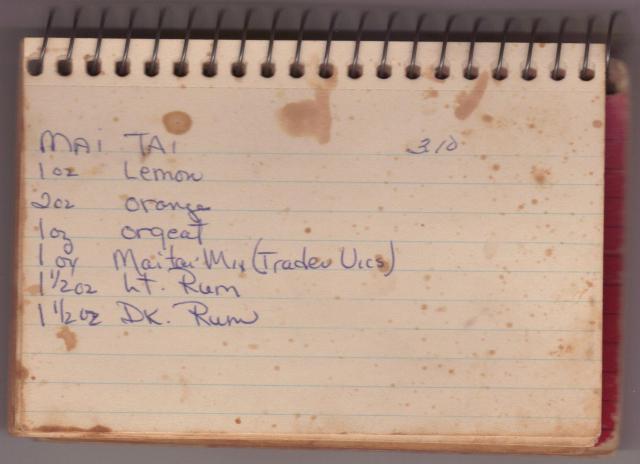 MAI TAI 3.10
1 oz Lemon
2 oz orange
1 oz orgeat
1 oz Maitai Mix (Trader Vics)
1 1/2 oz Lt. Rum
1 1/2 oz DK. Rum